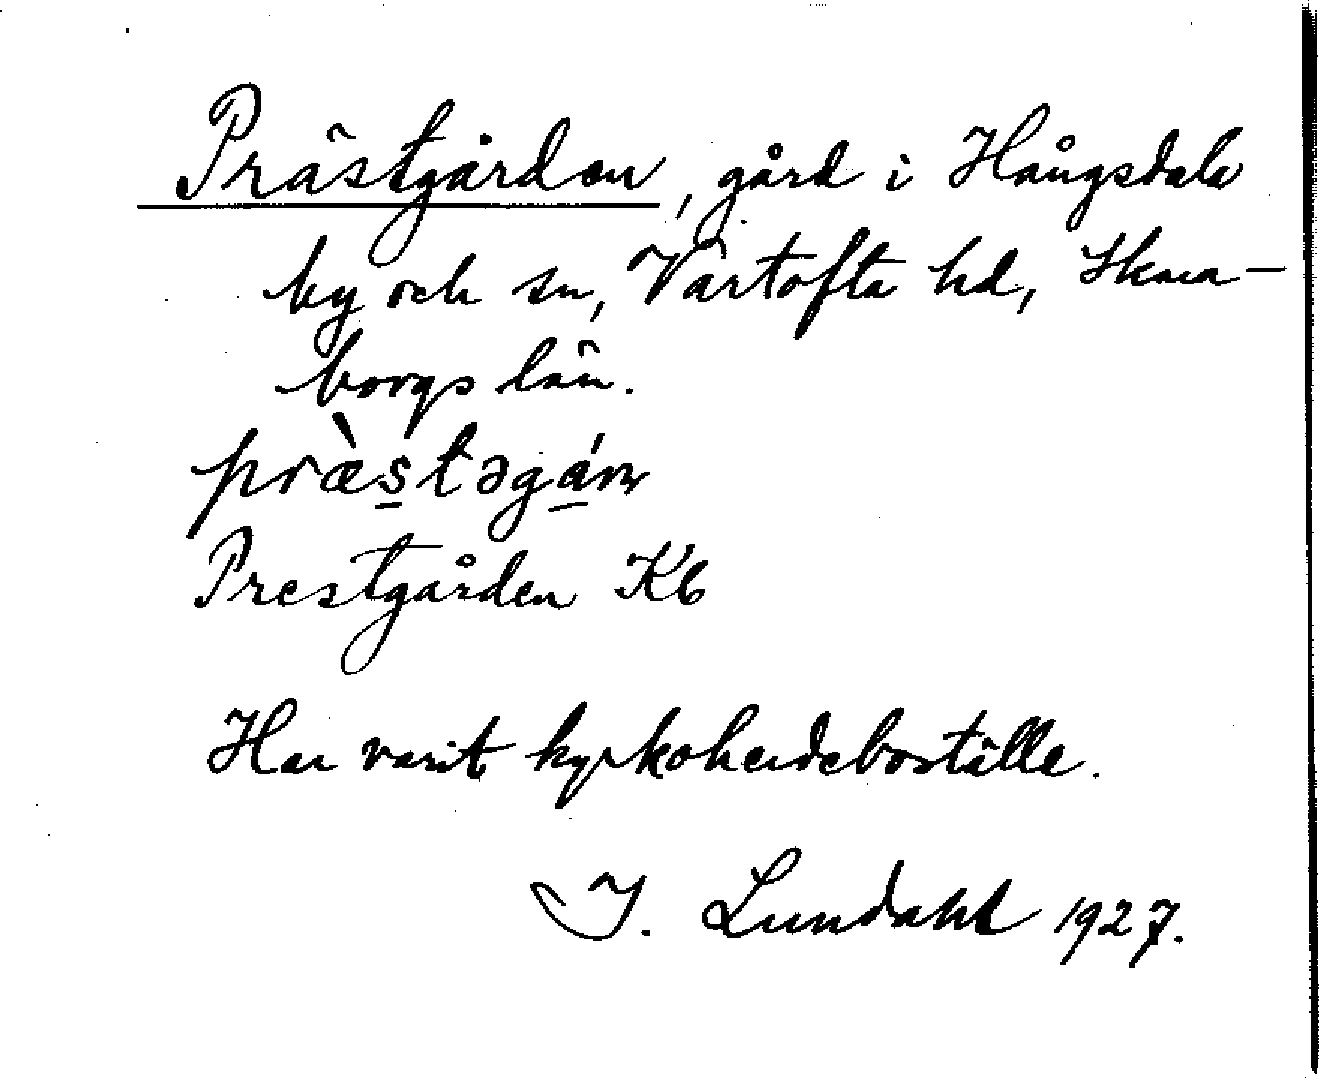 Prästgården, gård i Hångsdala
by och sn, Vartofta hd, Skara-
borgs län.
præ̀stəgán
Prestgården Kb
Har varit kyrkoherdeboställe.
I. Lundahl 1927.